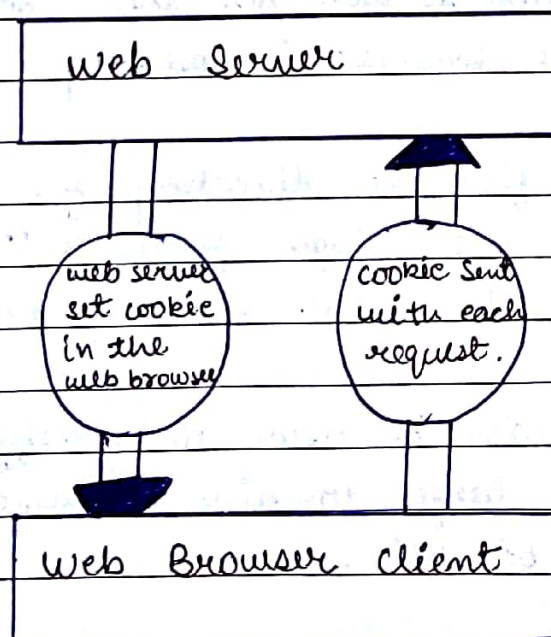 Web Server
web server
set cookie
in the
web browser
cookie sent
with each
request.
Web Browser Client